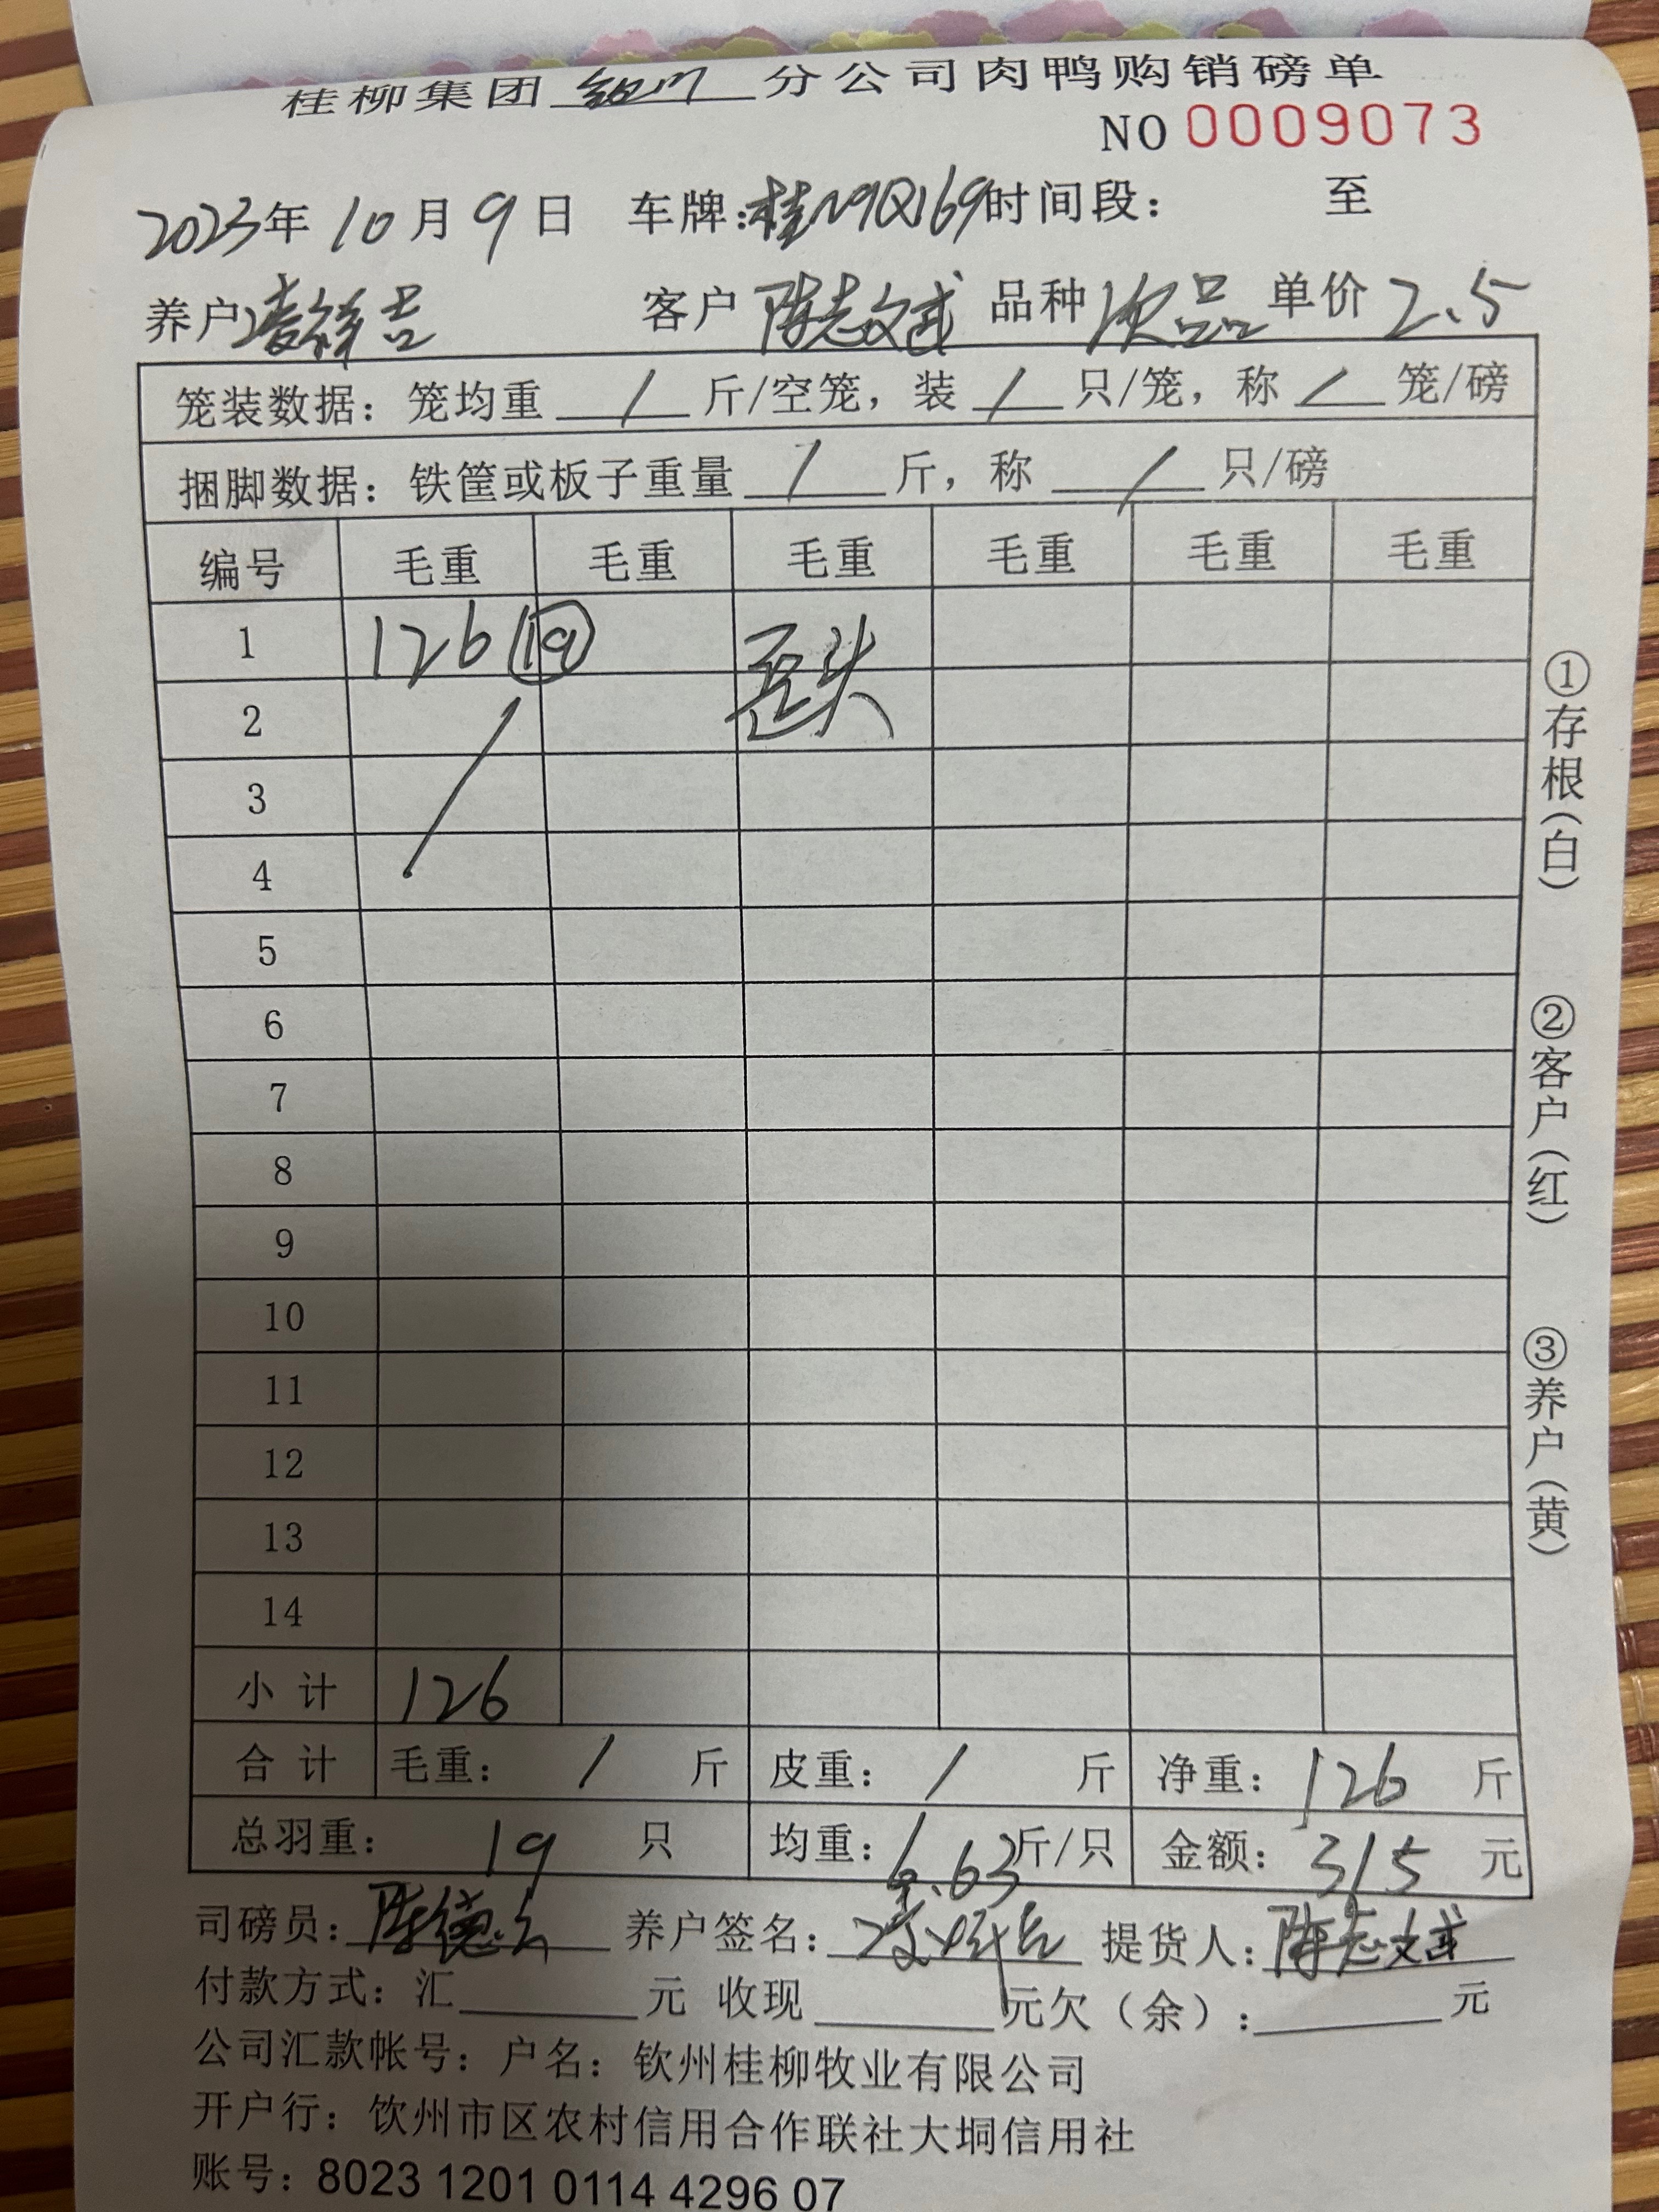 桂柳集团 钦州 分公司肉鸭购销磅单
NO 0009073
2023年 10 月 9 日 车牌: 时间段: 至
养户 凌祥吉 客户 陈志斌 品种 次品 单价 2.5
笼装数据: 笼均重 / 斤/空笼, 装 / 只/笼, 称 / 笼/磅
捆脚数据: 铁筐或板子重量 / 斤, 称 / 只/磅
编号 毛重 毛重 毛重 毛重 毛重 毛重
1 126 (19) 歪头
2
3
4
5
6
7
8
9
10
11
12
13
14
小 计 126
合 计 毛重: / 斤 皮重: / 斤 净重: 126 斤
总羽重: 19 只 均重: 6.63 斤/只 金额: 315 元
司磅员: 养户签名: 提货人: 陈志斌
付款方式: 汇 元 收现 元欠(余): 元
公司汇款帐号: 户名: 钦州桂柳牧业有限公司
开户行: 饮州市区农村信用合作联社大垌信用社
账号: 8023 1201 0114 4296 07
①存根(白)
②客户(红)
③养户(黄)